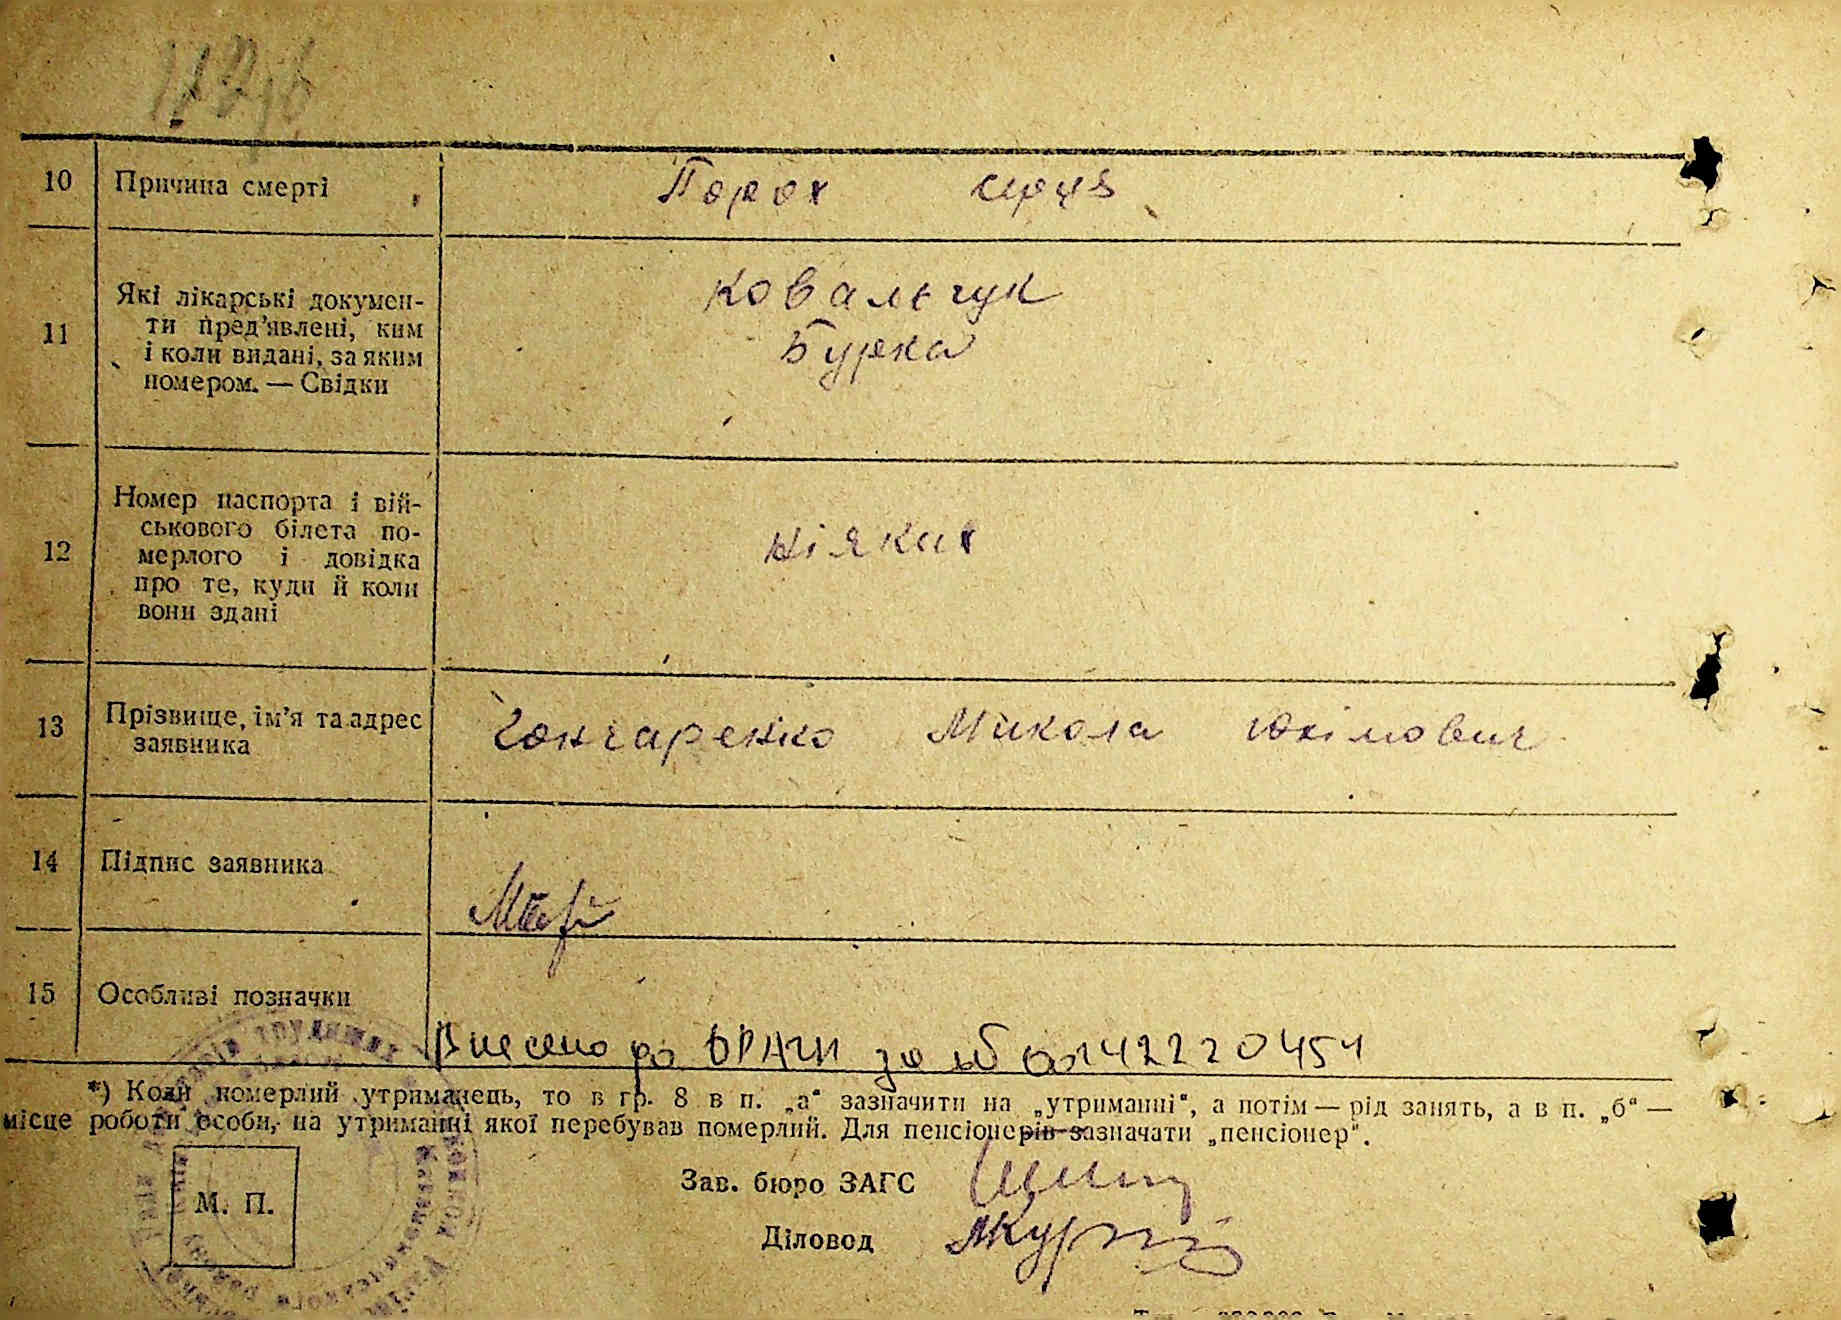 10 Причина смерті Порох серця
11 Які лікарські докумен-
ти пред'явлені, ким
і коли видані, за яким
номером. — Свідки
Ковальчук
Бурка
12 Номер паспорта і вій-
ськового білета по-
мерлого і довідка
про те, куди й коли
вони здані
ніяких
13 Прізвище, ім'я та адрес
заявника
Гончаренко Микола Юхімович
14 Підпис заявника
15 Особливі позначки
Внесено до ДРАЦС за №
*) Коли померлий утриманець, то в гр. 8 в п. „а“ зазначити на „утриманні“, а потім — рід занять, а в п. „б“ —
місце роботи особи, на утриманні якої перебував померлий. Для пенсіонерів зазначати „пенсіонер“.
М. П.
Зав. бюро ЗАГС
Діловод